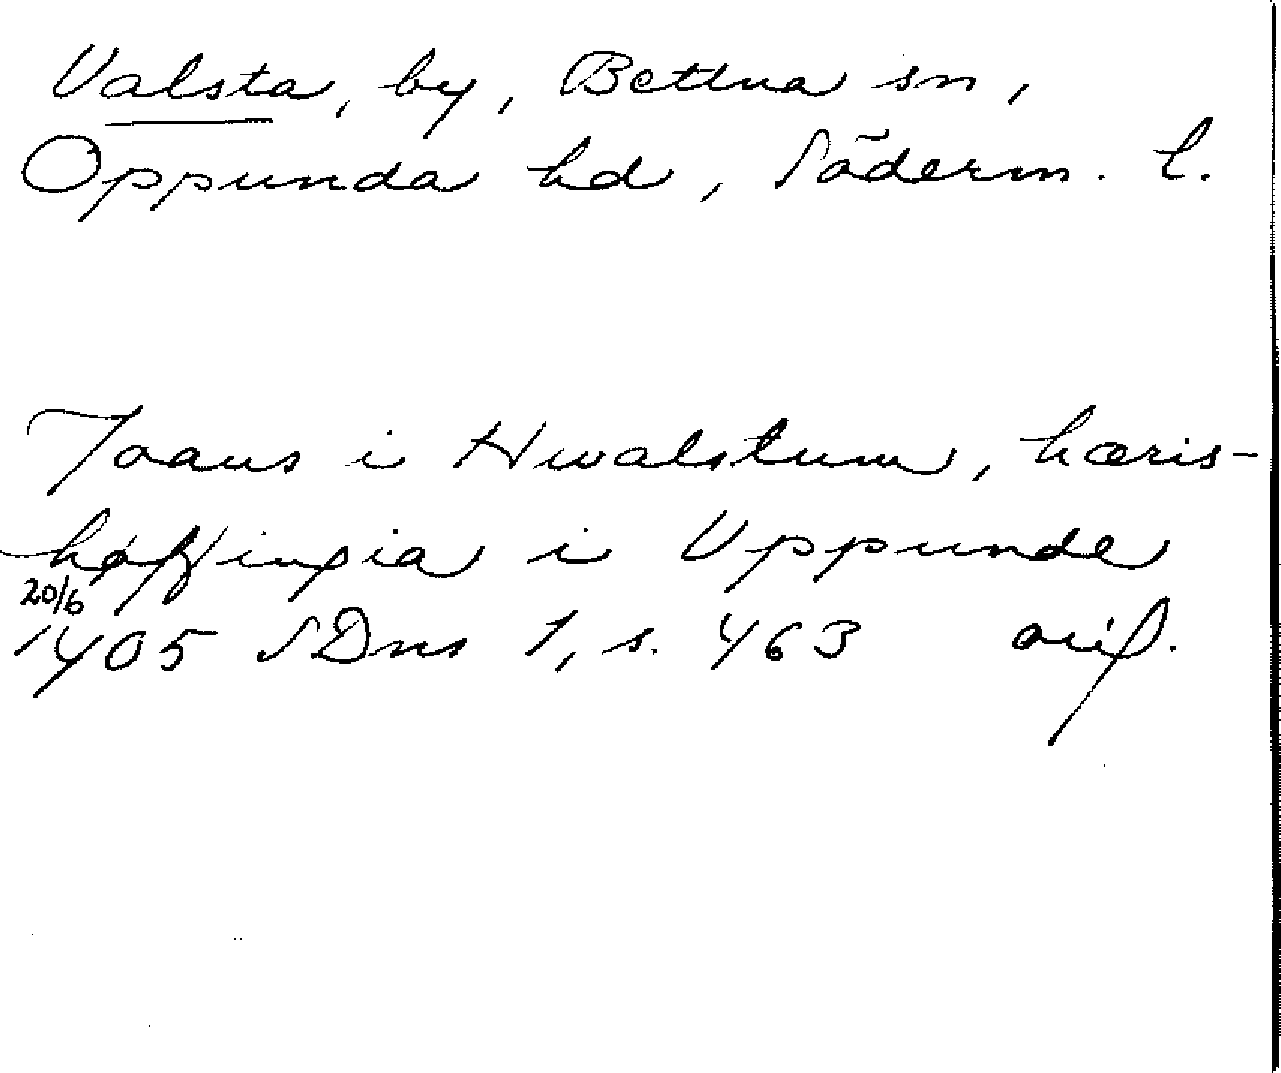 Valsta, by, Bettna sn,
Oppunda hd, Söderm. l.
Joans i Hwalstum, hæris-
høffingia i Vppunde
20/6
1405 SDns 1, s. 463 orig.